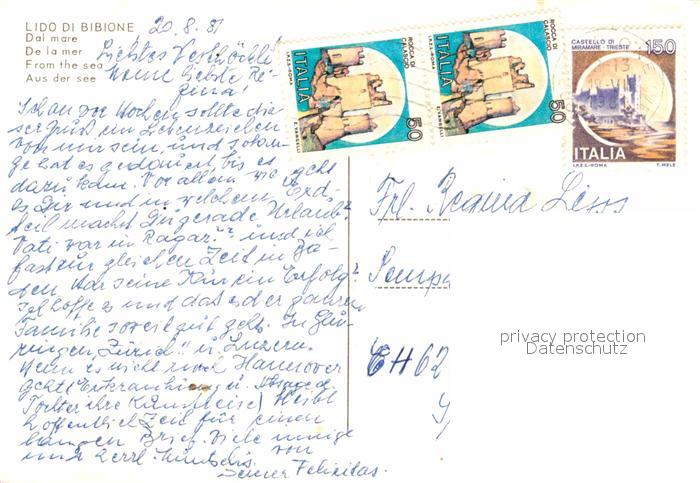 LIDO DI BIBIONE
Dal mare
De la mer
From the sea
Aus der see
20.8.81
meine liebste Re-
gina!
Schon vor Wochen sollte die-
ser Gruß, ein Lebenszeichen
von mir sein, und solan-
ge hat es gedauert bis es
dazu kam. Vor allem wie geht
es Dir und in welchem Erd-
teil machst Du gerade Urlaub?
Vati war in Ragaz und ich
fast zur gleichen Zeit in Ba-
den. War seine Kur ein Erfolg?
Ich hoffe es und das es der ganzen
Familie soweit gut geht. In
Zürich u. Luzern.
Wenn es nicht nach Hannover
geht
Tochter ihre bleibt
hoffentlich Zeit für einen
langen Brief. Viele innige
und herzl. von
Deiner Felicitas.
ROCCA DI
CALASCIO
ITALIA
50
I.P.Z.S.-ROMA
E. VANGELLI
ROCCA DI
CALASCIO
ITALIA
50
I.P.Z.S.-ROMA
E. VANGELLI
CASTELLO DI
MIRAMARE - TRIESTE
150
ITALIA
I.P.Z.S.-ROMA
T. MELE
Frl. Regina
CH 62
privacy protection
Datenschutz